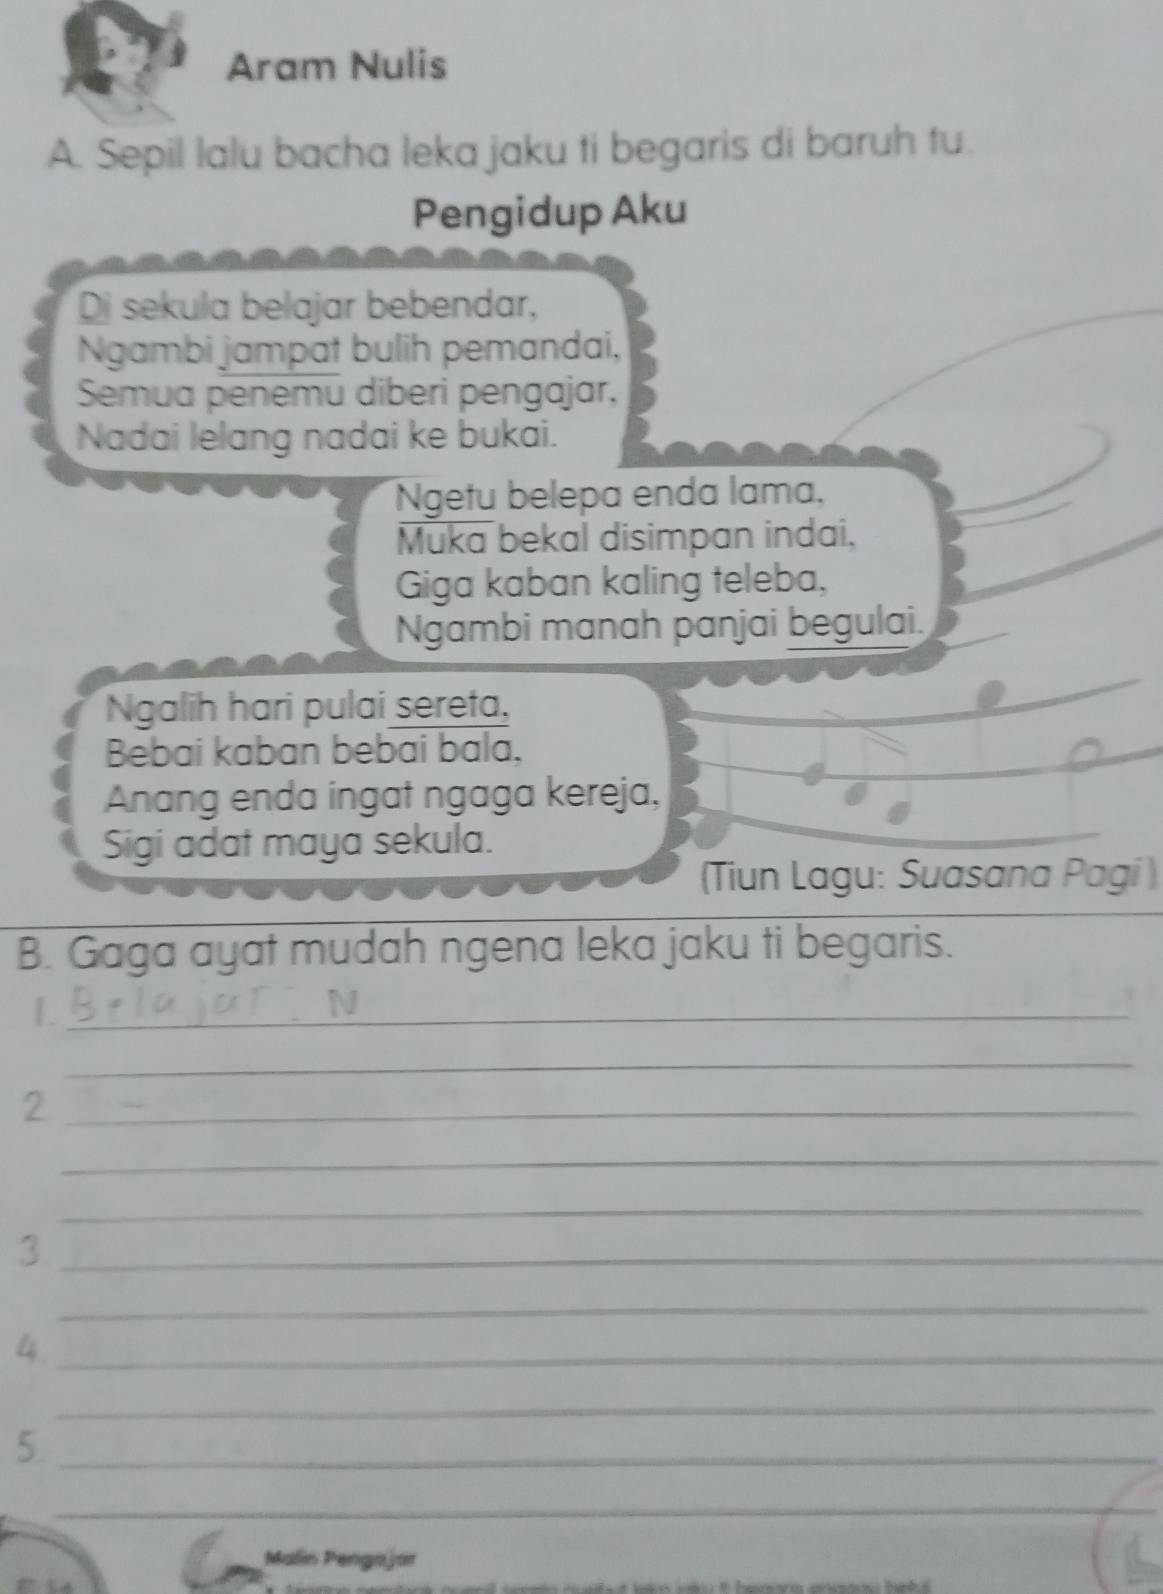 Aram Nulis
A. Sepil lalu bacha leka jaku ti begaris di baruh tu.
Pengidup Aku
Di sekula belajar bebendar,
Ngambi jampat bulih pemandai,
Semua penemu diberi pengajar,
Nadai lelang nadai ke bukai.
Ngetu belepa enda lama,
Muka bekal disimpan indai,
Giga kaban kaling teleba,
Ngambi manah panjai begulai.
Ngalih hari pulai sereta,
Bebai kaban bebai bala,
Anang enda ingat ngaga kereja,
Sigi adat maya sekula.
(Tiun Lagu: Suasana Pagi)
B. Gaga ayat mudah ngena leka jaku ti begaris.
1. Belajar : N
2.
3.
4.
5.
Malin Pengajar